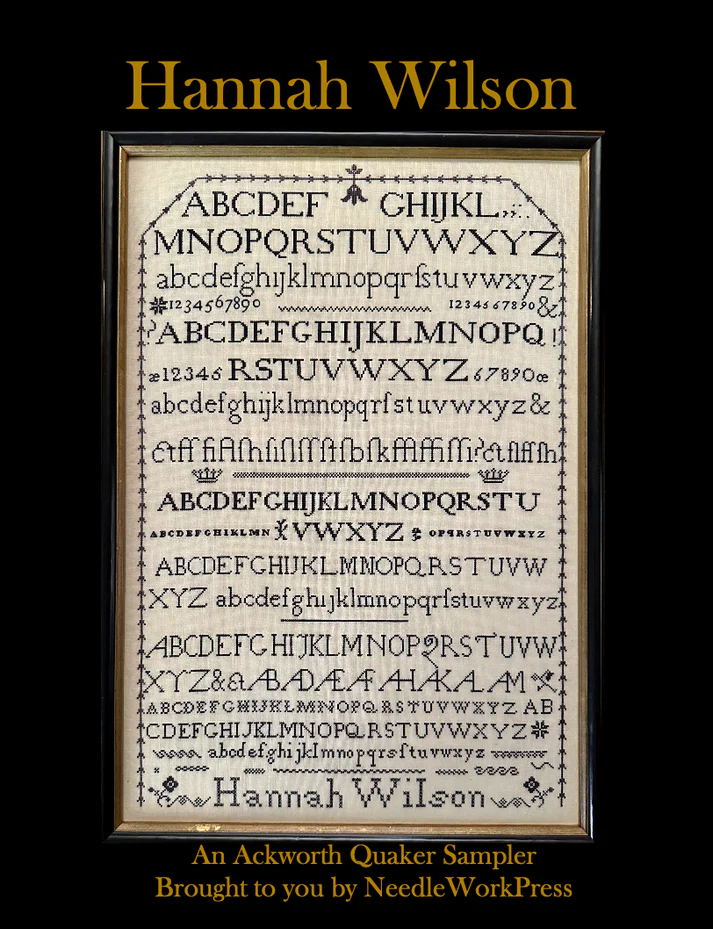 Hannah Wilson
ABCDEF GHIJKL.,;:.
MNOPQRSTUVWXYZ
abcdefghijklmnopqrſstuvwxyz
1234567890 1234567890&
?ABCDEFGHIJKLMNOPQ!
æ12345 RSTUVWXYZ 67890œ
abcdefghijklmnopqrſstuvwxyz&
ABCDEFGHIJKLMNOPQRSTU
ABCDEFGHIKLMN VWXYZ OPQRSTUVWXYZ
ABCDEFGHIJKLMNOPQRSTUVW
XYZ abcdefghıjklmnopqrſstuvwxyz
ABCDEFGHIJKLMNOPQRSTUVW
ABCDEFGHIJKLMNOPQRSTUVWXYZ AB
CDEFGHIJKLMNOPQRSTUVWXYZ
abcdefghijklmnopqrsſtuvwxyz
Hannah Wilson
An Ackworth Quaker Sampler
Brought to you by NeedleWorkPress